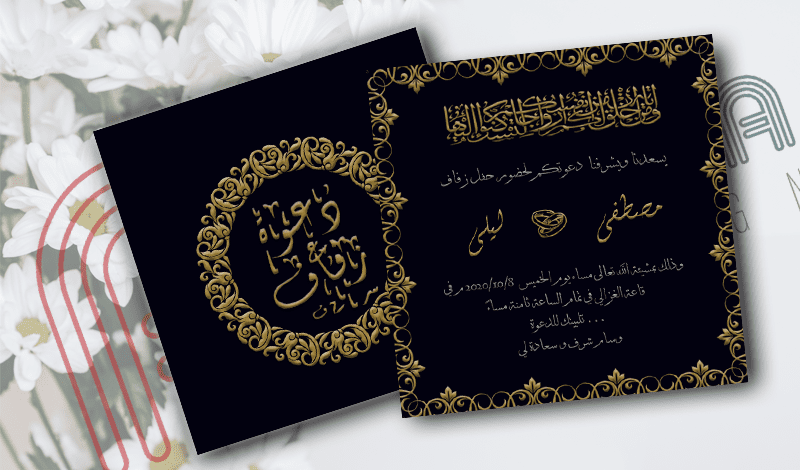 دعوة
زفاف
ومن آياته أن خلق لكم من أنفسكم أزواجا لتسكنوا إليها
يسعدنا ويشرفنا دعوتكم لحضور حفل زفاف
مصطفى
ليلى
وذلك بمشيئة الله تعالى مساء يوم الخميس 2020/10/8 م في
قاعة الغزالي في تمام الساعة ثامنة مساءً
تلبيتك للدعوة . . .
وسام شرف وسعادة لي